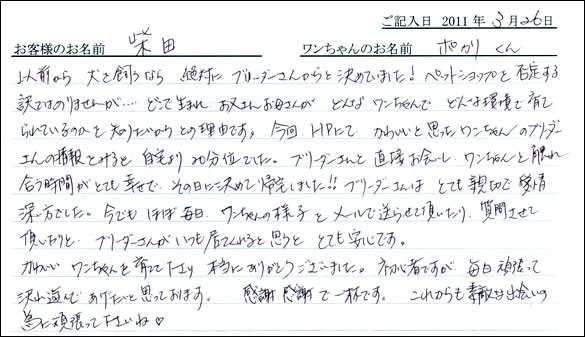 ご記入日 2011年 3月26日
お客様のお名前 柴田 ワンちゃんのお名前 ポカリ くん
以前から 犬を飼うなら 絶対に ブリーダーさんからと決めていました! ペットショップを否定する
訳ではありませんが… どこで生まれ お父さんお母さんが どんな ワンちゃんで どんな環境で育て
られているのかを知りたいから との理由です。 今回、HPにて かわいいと思ったワンちゃんのブリーダー
さんの情報をみると 自宅より20分位でした。 ブリーダーさんと直接お会いし、ワンちゃんと触れ
合う時間がとても幸せで、その日に決めて帰宅しました!! ブリーダーさんは とても親切で愛情
深い方でした。今でも ほぼ毎日、ワンちゃんの様子を メールで送らせて頂いたり、質問させて
頂いたりと ブリーダーさんがいつも居てくれると思うと とても安心です。
かわいい ワンちゃんを育てて下さり 本当にありがとうございました。 初心者ですが 毎日頑張って
沢山遊んで あげたいと思っております。 感謝 感謝で一杯です。 これからも素敵な出会いの
為に頑張って下さいね♡